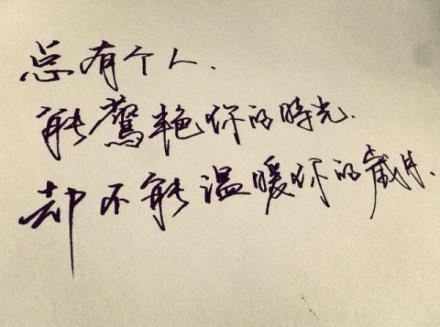 总有个人.
能驚艳你的時光.
却不能温暖你的歲月.